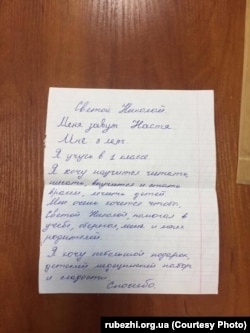 Святой Николай.
Меня зовут Настя
Мне 8 лет
Я учусь в 2 классе
Я хочу научится читать,
писать, выучится и стать
врачом, лечить детей.
Мне очень хочется чтобы
Святой Николай, помогал в
учебе, оберегал, меня и моих
родителей.
Я хочу небольшой подарок,
детский медицинский набор
и сладости.
Спасибо.
rubezhi.org.ua (Courtesy Photo)